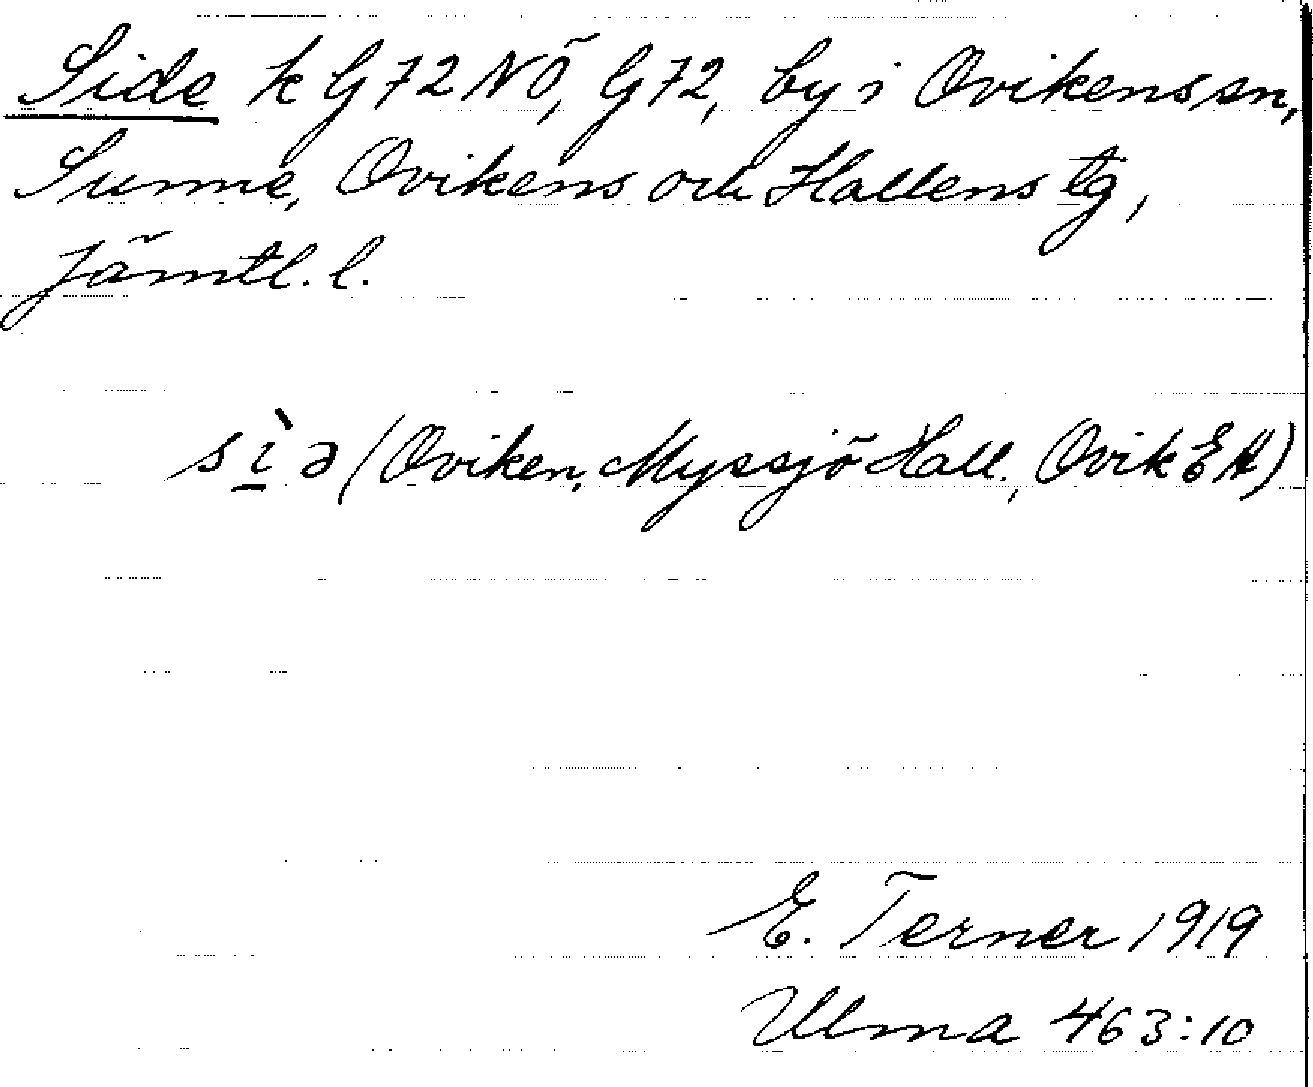 Side k G72NÖ, G72, by i Ovikens sn,
Sunne, Ovikens och Hallens tg,
Jämtl. l.
sì̱ ə (Oviken, Myssjö Hall., Ovik EH)
E. Terner 1919
Ulma 463:10